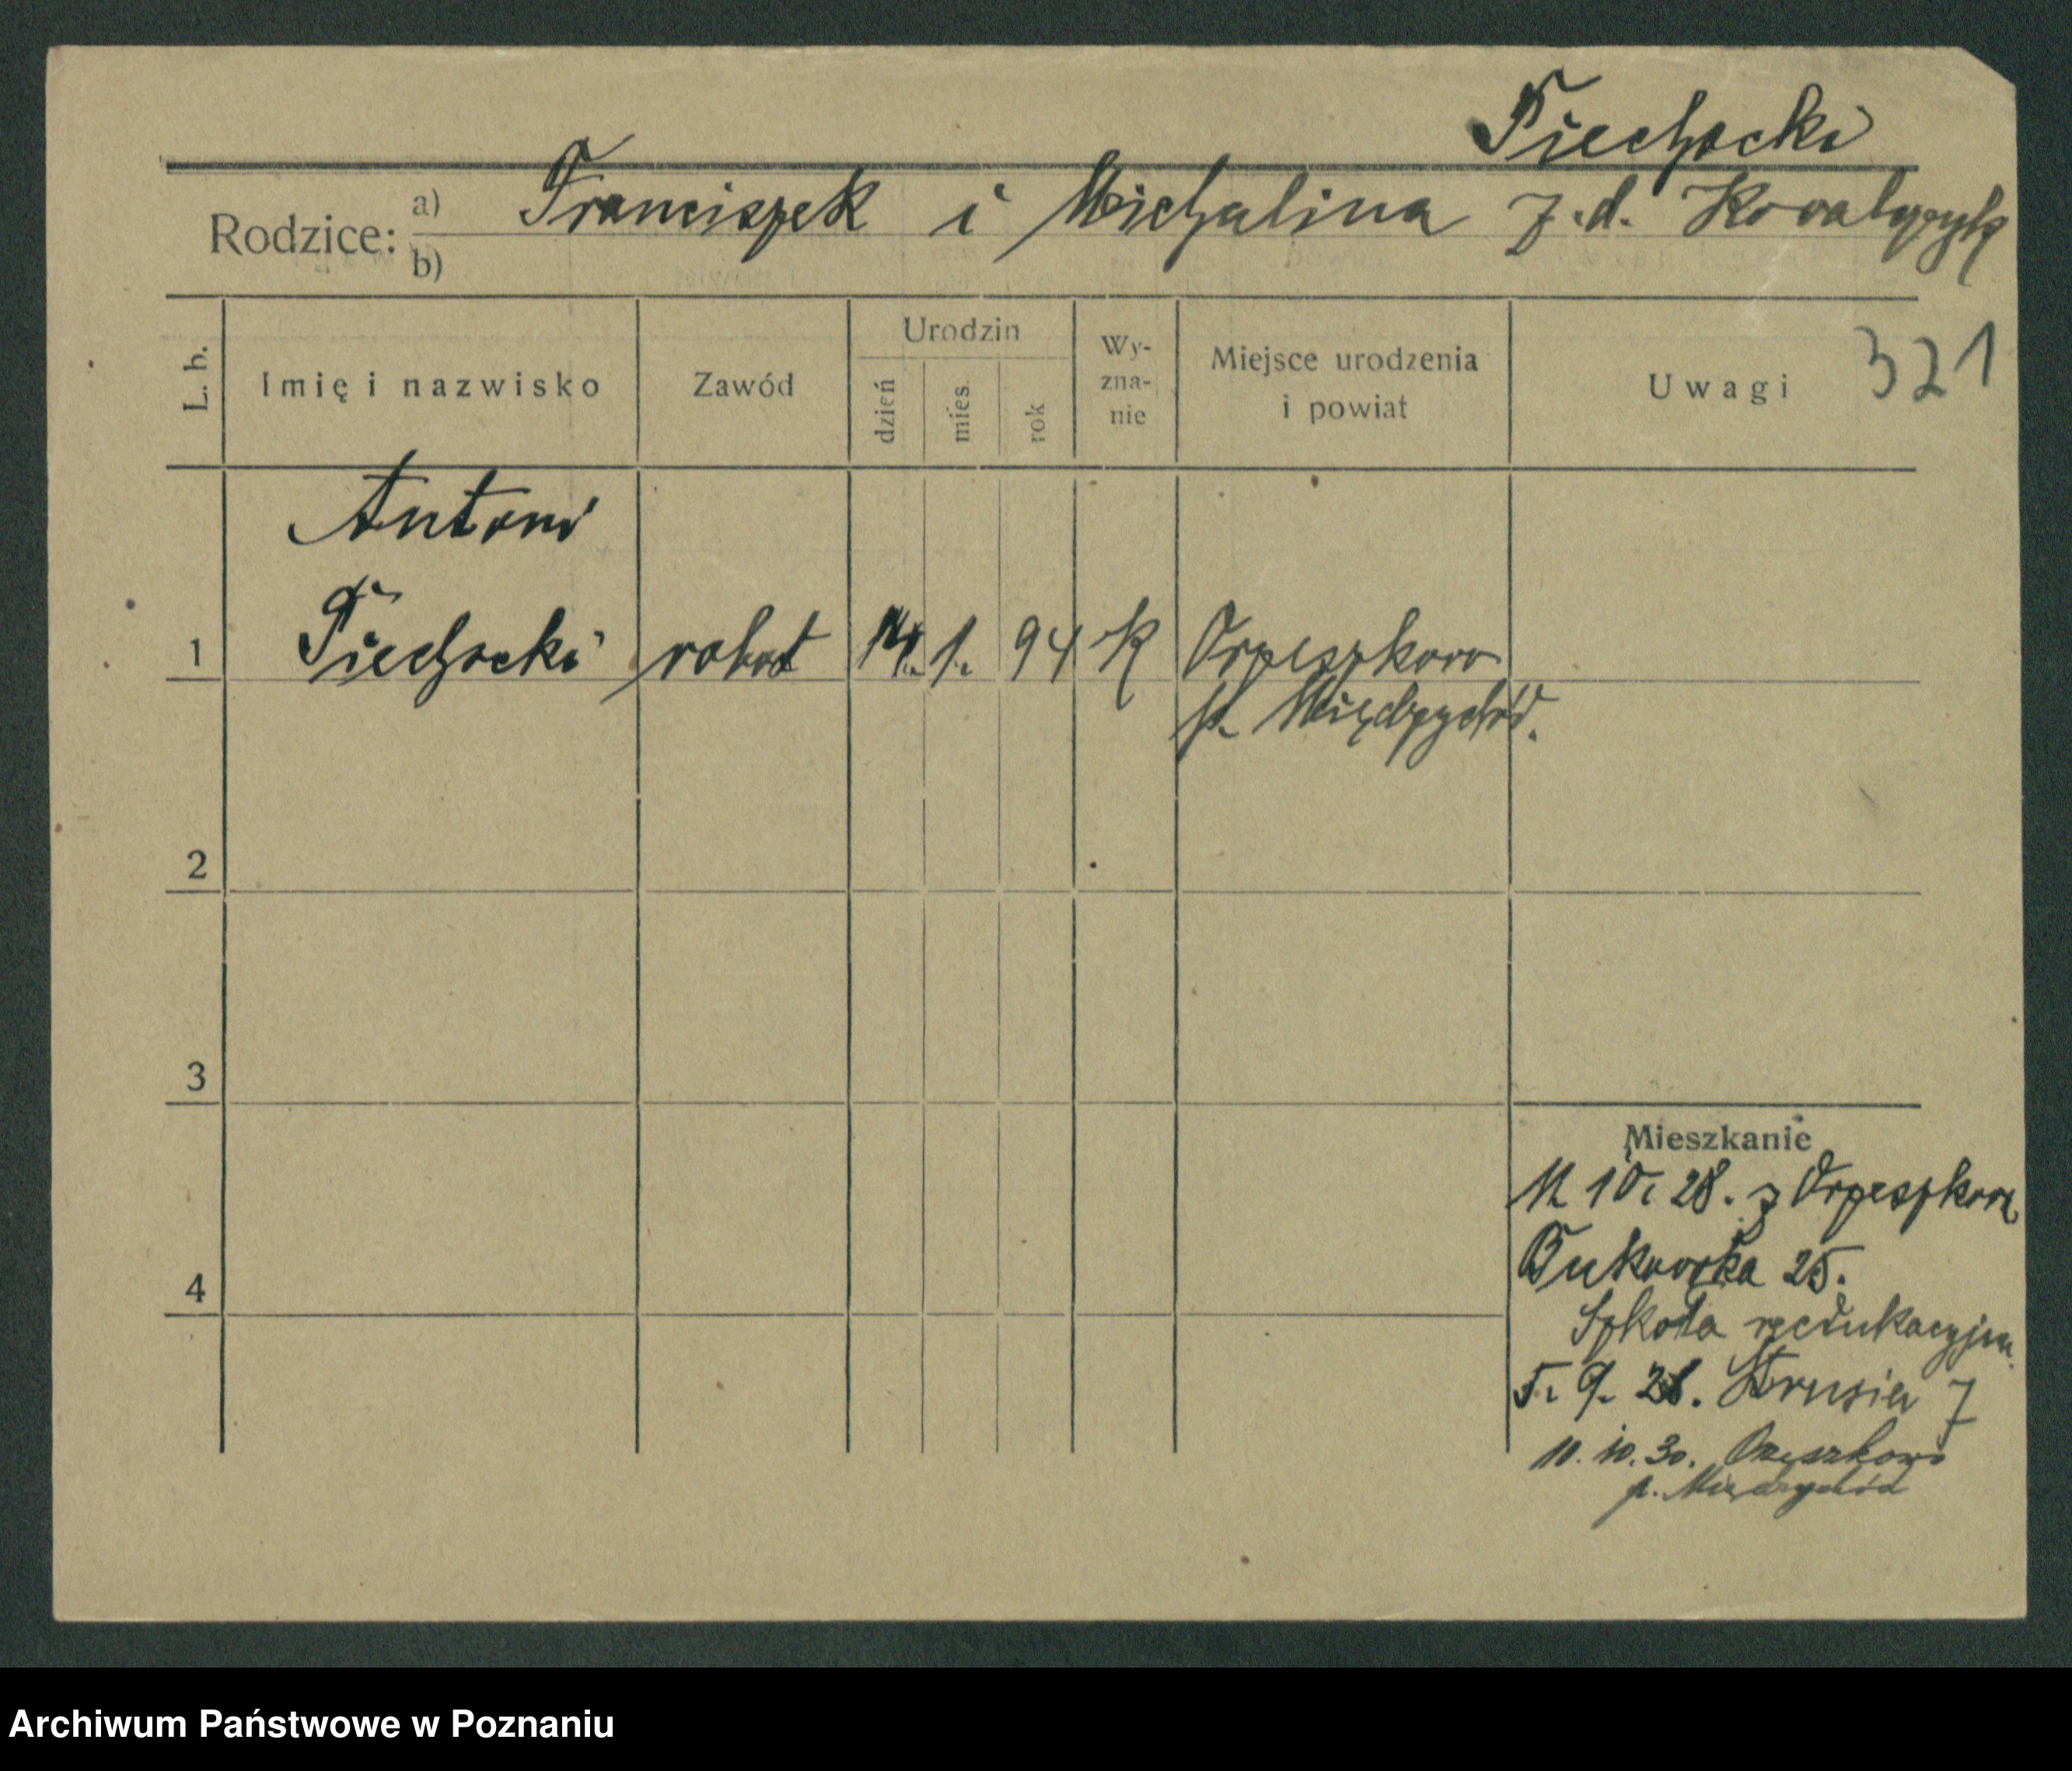 Piechocki
Rodzice: a) Franciszek i Michalina z. d. Kowalczyk
b)
321
L. b. Imię i nazwisko Zawód Urodzin dzień mies. rok Wy-zna-nie Miejsce urodzenia i powiat Uwagi
Antoni
1 Piechocki robot 14. 1. 94 K Orzeszkowo
p. Międzychód.
2
3
Mieszkanie
10. 28. z Orzeszkowa
4 Bukowska 25.
Szkoła
5. 9. 28. Strusia 7
10. 10. 30. Orzeszkowo
p. Międzychód
Archiwum Państwowe w Poznaniu